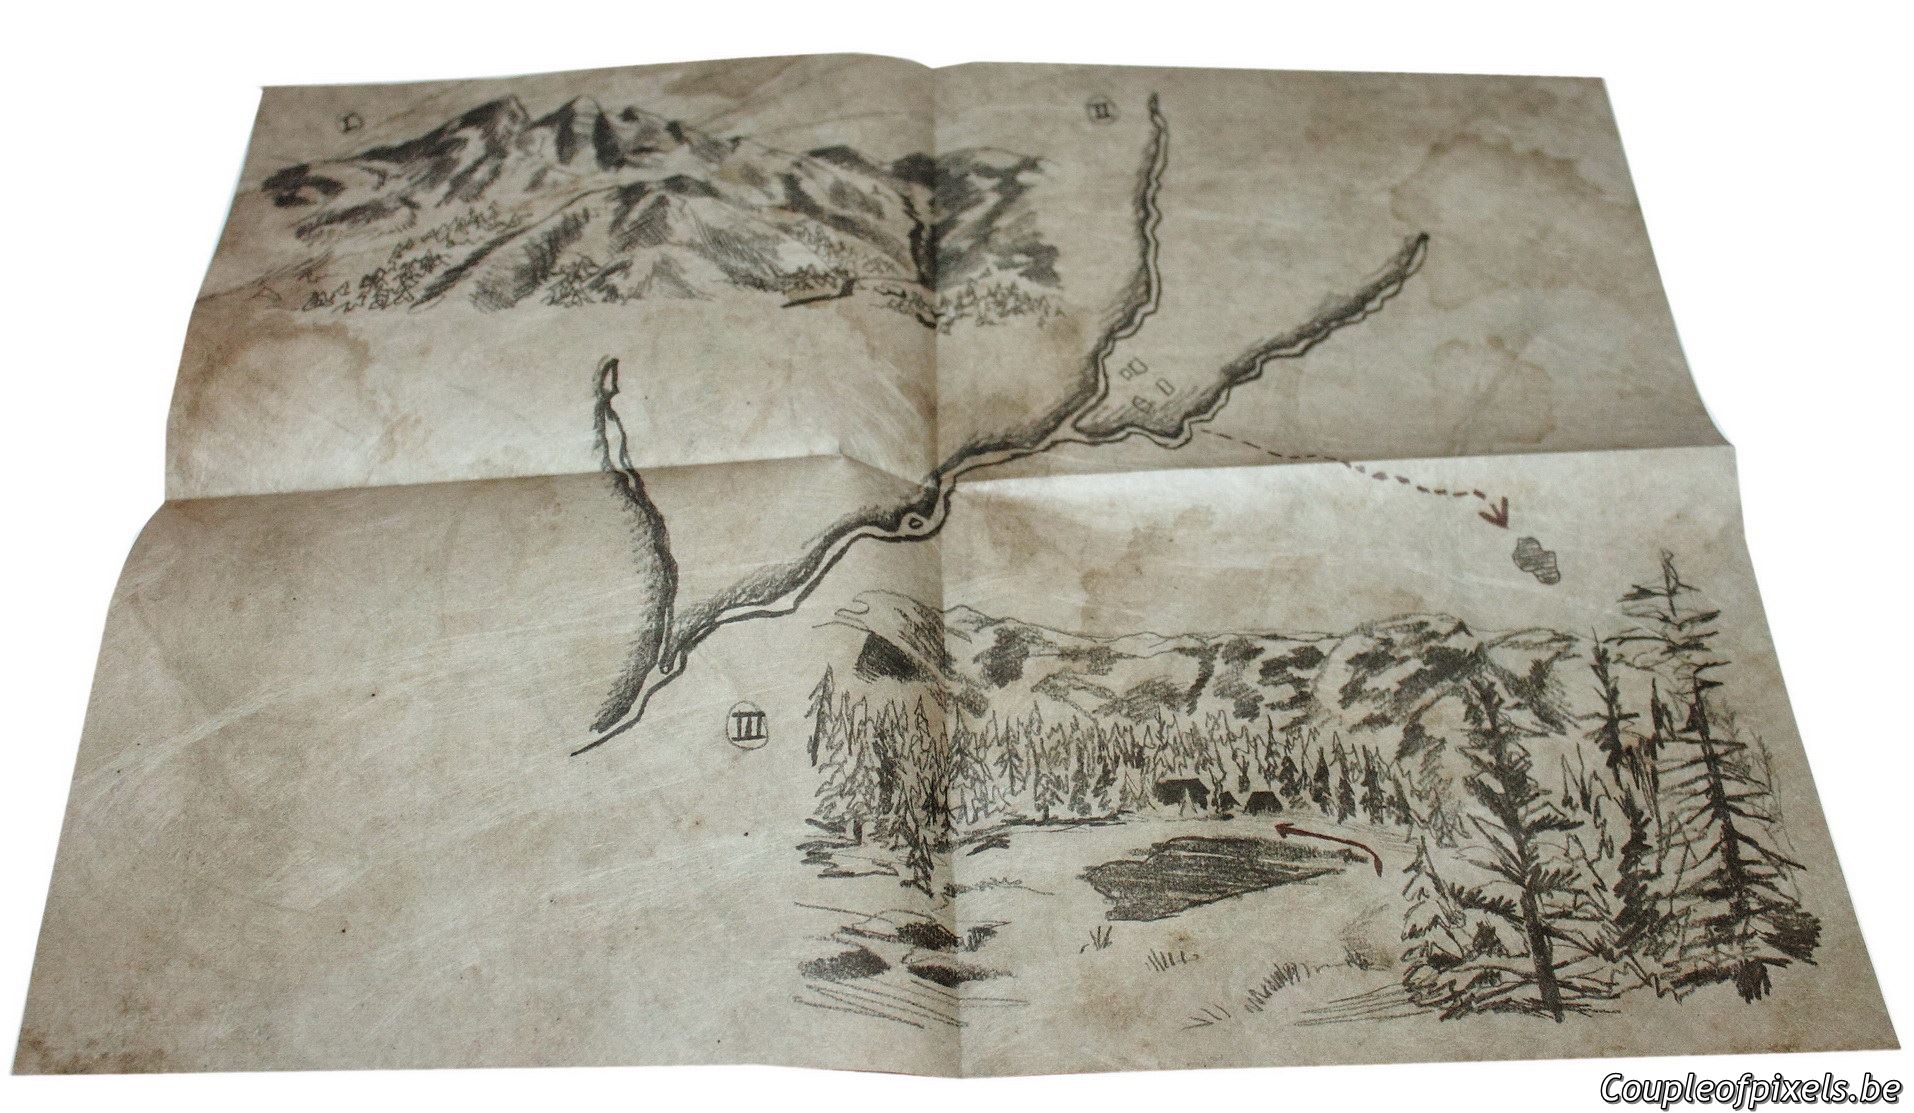 I
II
III
Coupleofpixels.be